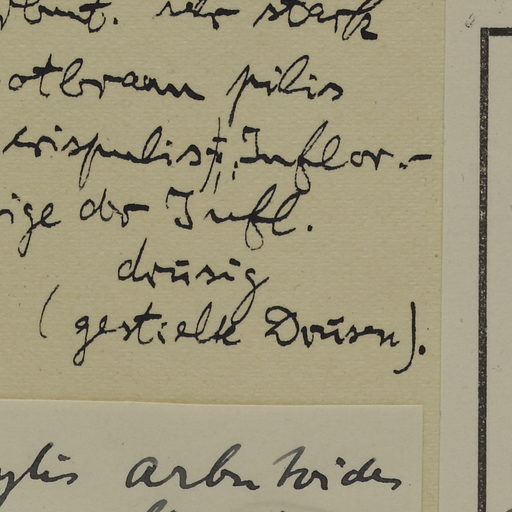 sehr stark
otbraun pilis
crispulis, Inflor.-
ige der Infl.
drüsig
(gestielte Drüsen).
ylis arbutoides